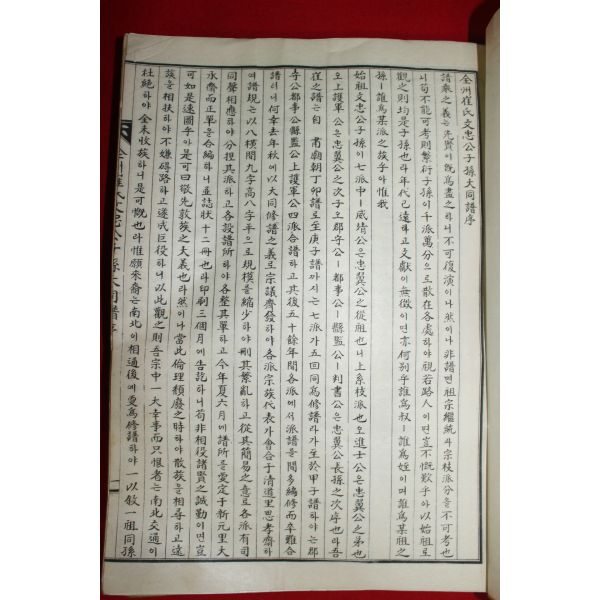 全州崔氏文忠公子孫大同譜序
譜乘之義는先賢이旣爲盡之하니不可復演이나然이나非譜면祖宗繼統과宗枝派分을不可考也
니苟不能可考則繁衍子孫이千派萬分으로散在各處하야視若路人이면豈不慨歎乎아以始祖로
觀之則均是子孫也라年代已遠하고文獻이無徵이면亦何別乎誰爲叔ㅣ誰爲姪이며誰爲某祖之
孫ㅣ誰爲某派之族乎아惟我
始祖文忠公子孫이七派中ㅣ威靖公은忠翼公之從祖也니上系枝派也오進士公은忠翼公之弟也
오上護軍公은忠翼公之次子오郡守公ㅣ都事公ㅣ縣監公ㅣ判書公은忠翼公長孫之次序也라吾
崔之譜는自肅廟朝丁卯譜로至庚子譜까지는七派가五回同爲修譜라가至於甲子譜하야는郡
守公都事公縣監公上護軍公四派合譜하고其後五十餘年間各派에서派譜을間多編修而卒難合
譜러니何幸去年秋에以大同修譜之義로宗議齊發하야各派宗族代表가會合于清道里思孝齋하
여譜規는以八橫間九字高八字半으로規模을縮少하야刪其繁亂하고從其簡易之意로各派有司
同聲相應하야分担其派하고各設譜所하야各整其單하고今年夏六月에譜所을爰定于新元里大
永齋而正單을合編하니並誌狀十二冊也라印刷三個月에告訖하니苟非相役諸賢之誠勤이면豈
可如是速圖乎아是可曰敬先敦族之大義也라然이나當此倫理頹廢之時하야散族을相尋하고遠
族을相扶하야不嫌碍路하고遂成巨役하니以此觀之則吾宗中一大幸事而只恨者는南北交通이
杜絶하야全未收族하니是可慨也라惟願來裔는南北이相通後에更爲修譜하야一以敘一祖同孫